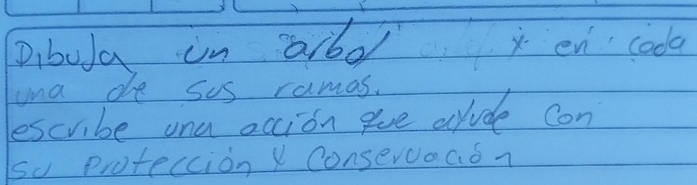 Dibuja un arbol y en cada
una de sus ramas.
escribe una acción que ayude con
su protección y conservación